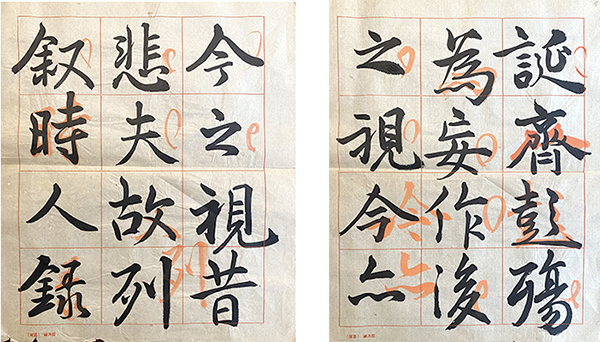 誕齊彭殤
為妄作後
之視今亦
今之視昔
悲夫故列
叙時人録